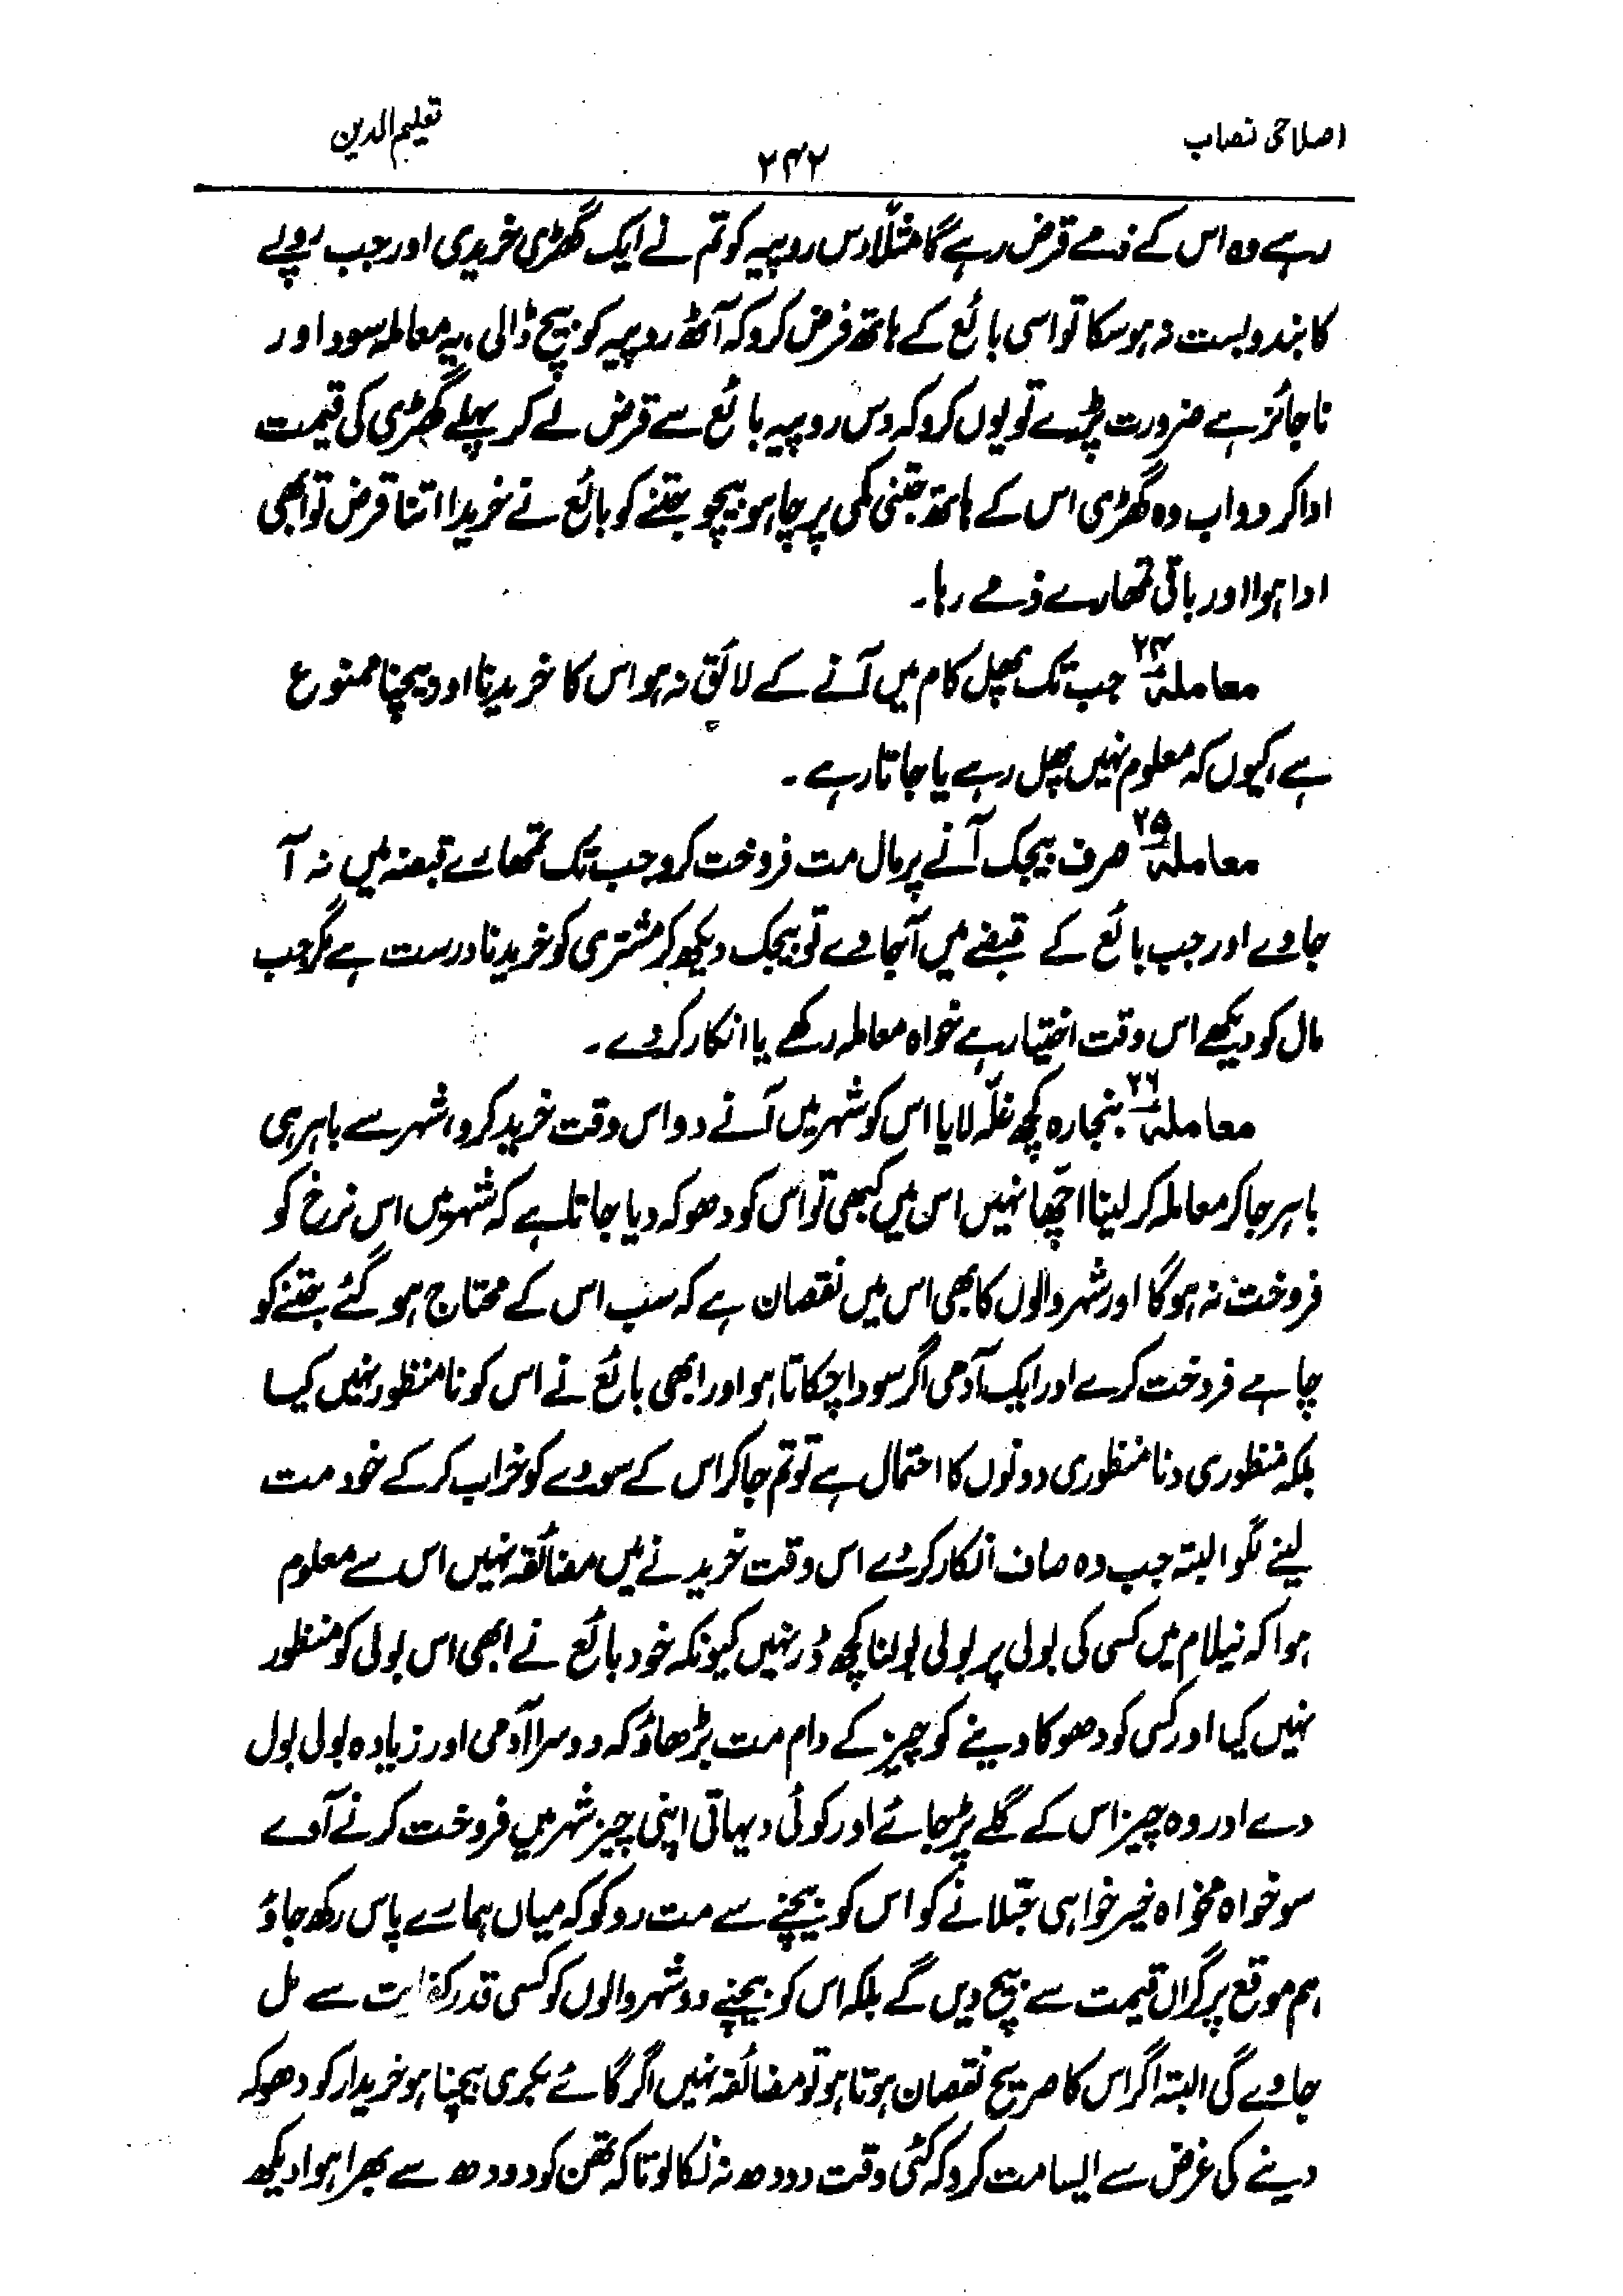 اصلاحی نصاب
۲۴۲
تعلیم الدین
رہے وہ اس کے ذمے قرض رہے گا مثلاً دس روپیہ کو تم نے ایک گھڑی خریدی اور جب روپے
کا بندوبست نہ ہو سکا تو اسی بائع کے ہاتھ فرض کرو کہ آٹھ روپیہ کو بیچ ڈالی، یہ معاملہ سود اور
ناجائز ہے ضرورت پڑے تو یوں کرو کہ دس روپیہ بائع سے قرض لے کر پہلے گھڑی کی قیمت
ادا کر دو اب وہ گھڑی اس کے ہاتھ جتنی کمی پر چاہو بیچو جتنے کو بائع نے خریدا اتنا قرض تو ابھی
ادا ہوا اور باقی تمھارے ذمے رہا۔
معاملہ ۲۴ جب تک پھل کام میں آنے کے لائق نہ ہو اس کا خریدنا اور بیچنا ممنوع
ہے، کیوں کہ معلوم نہیں پھل رہے یا جاتا رہے۔
معاملہ ۲۵ صرف بیجک آنے پر مال مت فروخت کرو جب تک تمھارے قبضہ میں نہ آ
جاوے اور جب بائع کے قبضے میں آجاوے تو بیجک دیکھ کر مشتری کو خریدنا درست ہے مگر جب
مال کو دیکھے اس وقت اختیار ہے خواہ معاملہ رکھے یا انکار کر دے۔
معاملہ ۲۶ بنجارہ کچھ غلّہ لایا اس کو شہر میں آنے دو اس وقت خرید کرو، شہر سے باہر ہی
باہر جا کر معاملہ کر لینا اچّھا نہیں اس میں کبھی تو اس کو دھوکہ دیا جاتا ہے کہ شہر میں اس نرخ کو
فروخت نہ ہوگا اور شہر والوں کا بھی اس میں نقصان ہے کہ سب اس کے محتاج ہو گئے جتنے کو
چاہے فروخت کرے اور ایک آدمی اگر سودا چکاتا ہو اور ابھی بائع نے اس کو نامنظور نہیں کیا
بلکہ منظوری و نامنظوری دونوں کا احتمال ہے تو تم جا کر اس کے سودے کو خراب کر کے خود مت
لینے لگو البتہ جب وہ صاف انکار کر دے اس وقت خریدنے میں مضائقہ نہیں اس سے معلوم
ہوا کہ نیلام میں کسی کی بولی پر بولی بولنا کچھ ڈر نہیں کیونکہ خود بائع نے ابھی اس بولی کو منظور
نہیں کیا اور کسی کو دھوکا دینے کو چیز کے دام مت بڑھاؤ کہ دوسرا آدمی اور زیادہ بولی بول
دے اور وہ چیز اس کے گلے پڑ جائے اور کوئی دیہاتی اپنی چیز شہر میں فروخت کرنے آوے
سو خواہ مخواہ خیر خواہی جتلانے کو اس کو بیچنے سے مت روکو کہ میاں ہمارے پاس رکھ جاؤ
ہم موقع پر گراں قیمت سے بیچ دیں گے بلکہ اس کو بیچنے دو شہر والوں کو کسی قدر کفایت سے مل
جاوے گی البتہ اگر اس کا صریح نقصان ہوتا ہو تو مضائقہ نہیں اگر گائے بکری بیچنا ہو خریدار کو دھوکہ
دینے کی غرض سے ایسا مت کرو کہ کئی وقت دودھ نہ نکالو تاکہ تھن کو دودھ سے بھرا ہوا دیکھ